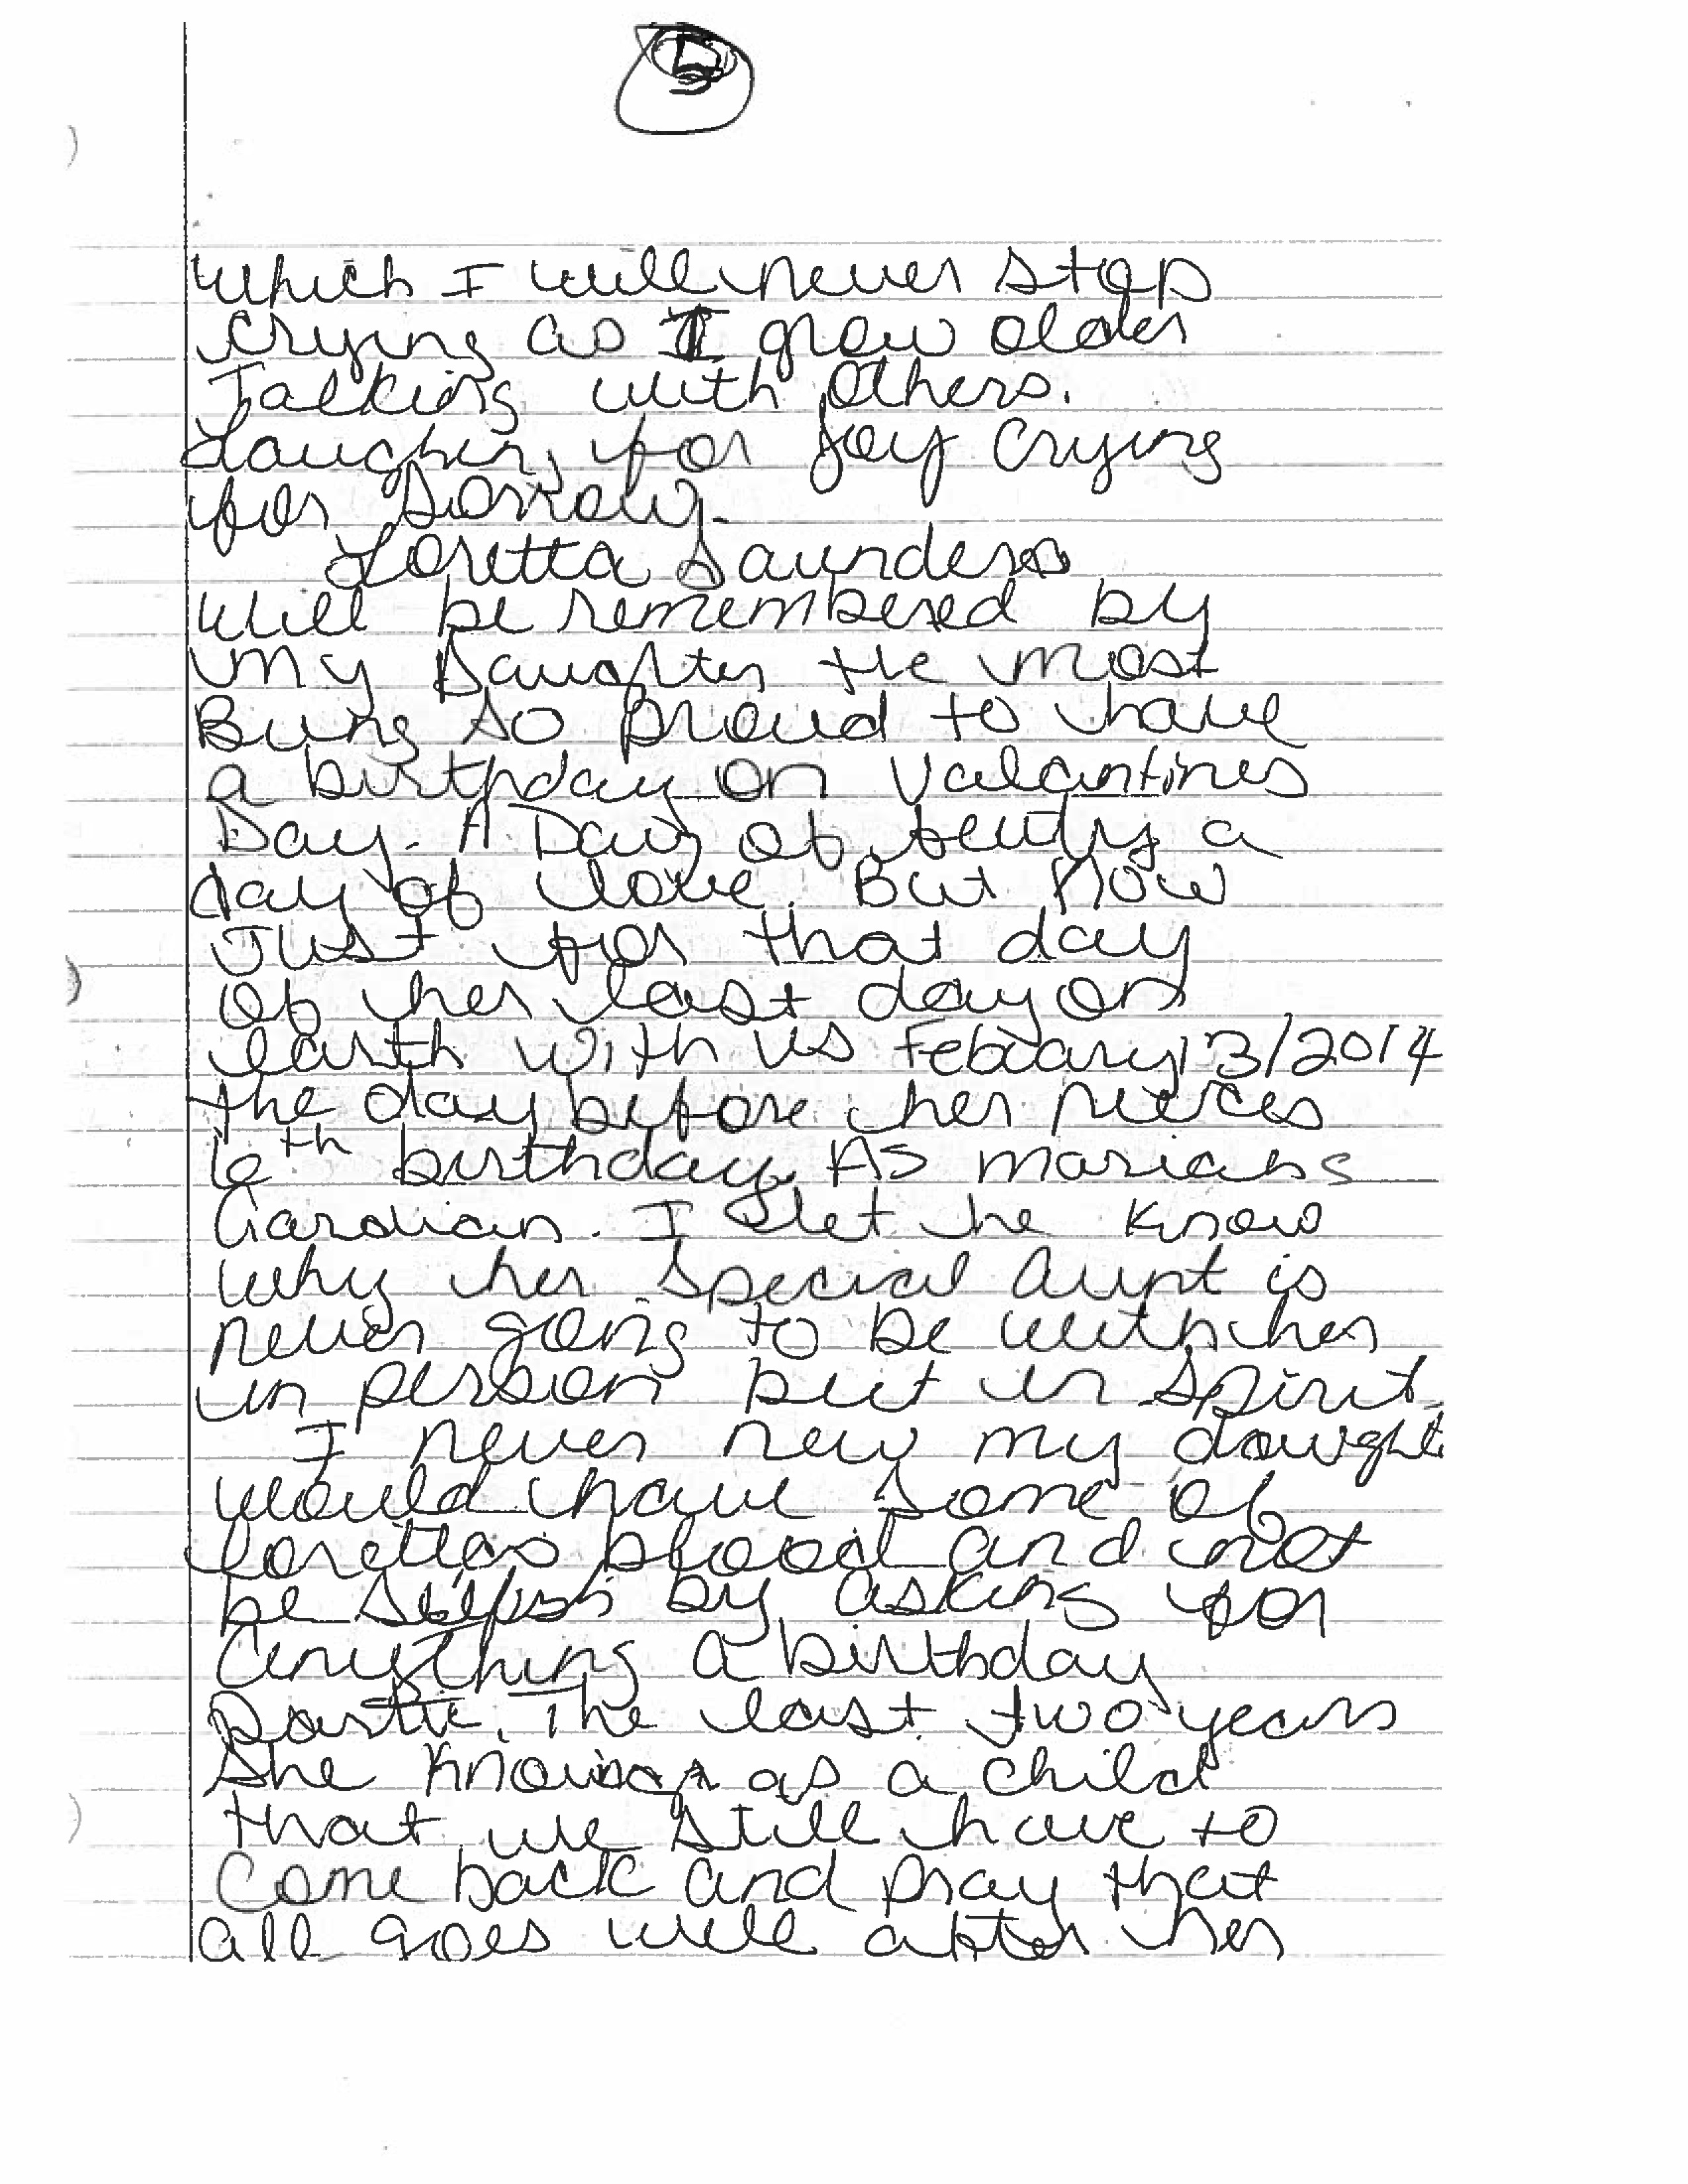 which I will never stop
crying as I grow older
Talking with others.
Laughin, for Joy Crying
for Sorrow.
Loretta Saunders
will be remembered by
my Daughter the most
Being so proud to have
a birthday on Valantines
Day. A Day of beuty a
day of love. But now
Just for that day
of her last day on
earth with us Febuary 13/2014
the day before her neices
6th birthday. As
Gardian. I let he know
why her special Aunt is
never going to be with her
in person but in Spirit.
I never new my daught
would have some of
Lorettas blood and not
be by asking for
anything a birthday
Partie. The last two years
she knowing as a child
that we still have to
Come back and pray that
all goes well after her